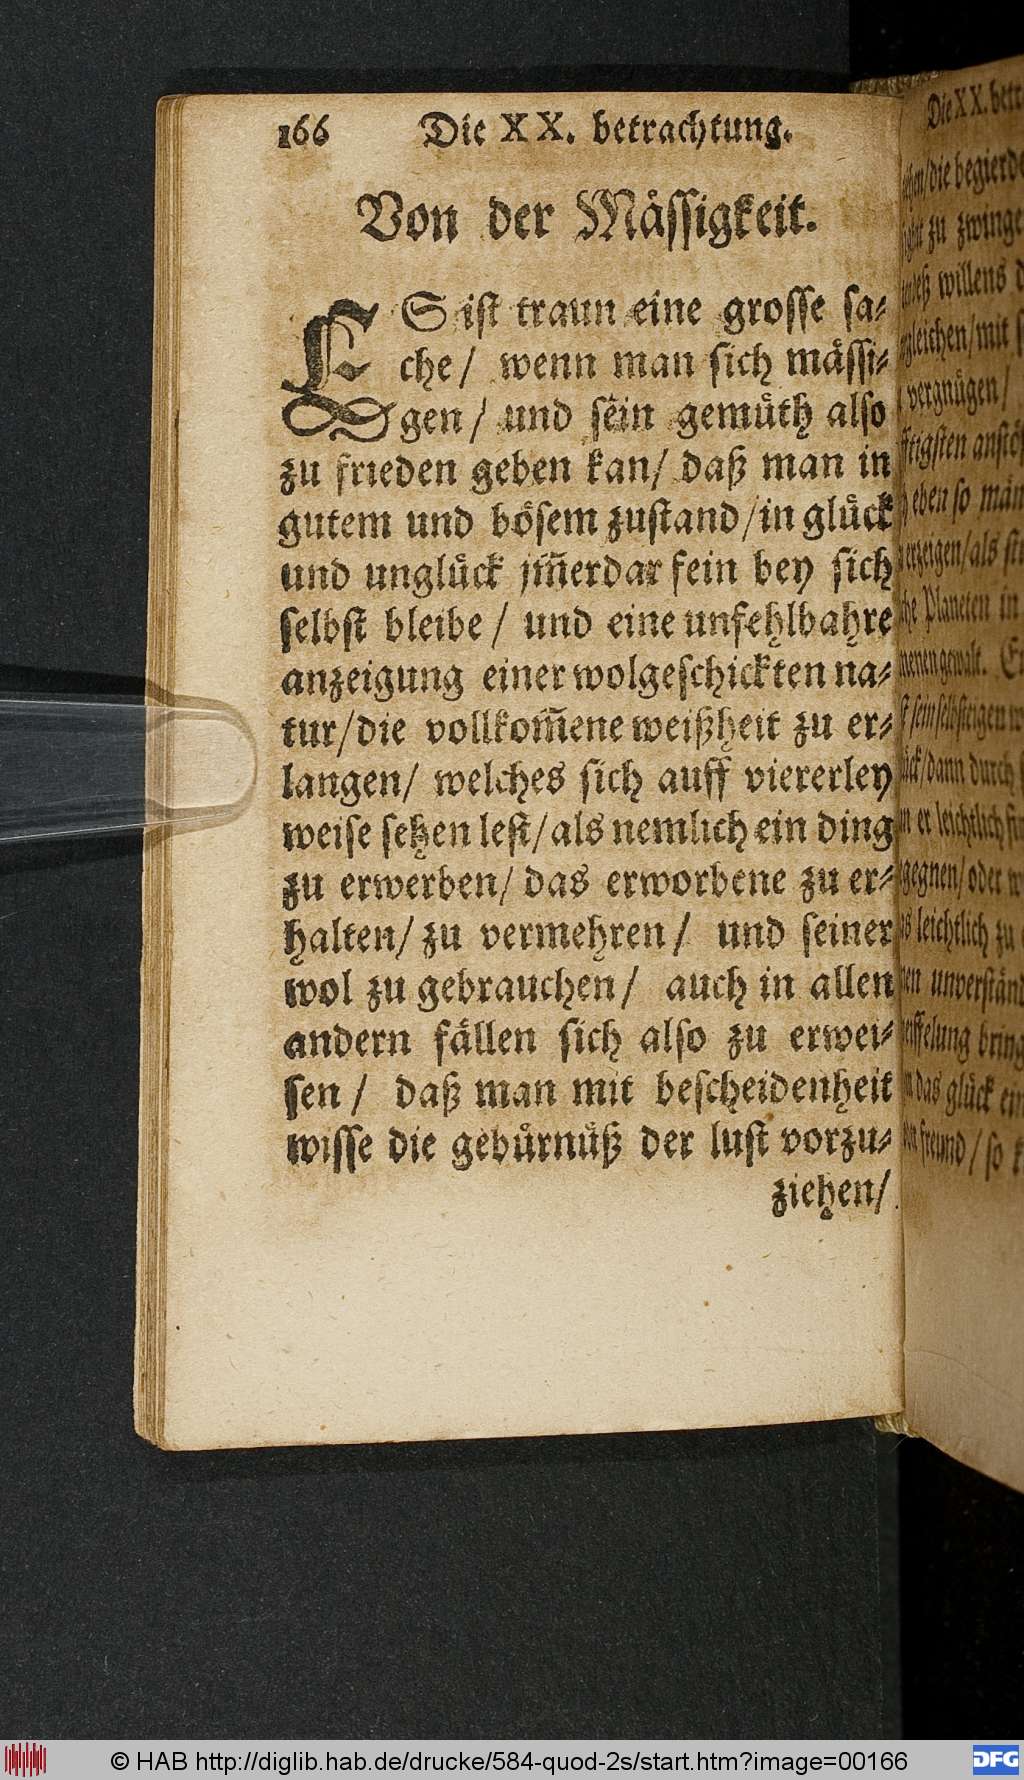 166 Die XX. betrachtung.
Von der Mässigkeit.
ES ist traun eine grosse sa-
che/ wenn man sich mässi-
gen/ und sein gemüth also
zu frieden geben kan/ daß man in
gutem und bösem zustand/in glück
und unglück jm̃erdar fein bey sich
selbst bleibe/ und eine unfehlbahre
anzeigung einer wolgeschickten na-
tur/die vollkom̃ene weißheit zu er-
langen/ welches sich auff viererley
weise setzen lest/als nemlich ein ding
zu erwerben/ das erworbene zu er-
halten/ zu vermehren/ und seiner
wol zu gebrauchen/ auch in allen
andern fällen sich also zu erwei-
sen/ daß man mit bescheidenheit
wisse die gebürnüß der lust vorzu-
ziehen/
Die XX.
/die
zu
willens
/mit
vergnügen/
eben so
/als
Planeten in
Er
/dann durch
er leichtlich
/oder
leichtlich zu
bring
das glück
freund/so
© HAB http://diglib.hab.de/drucke/584-quod-2s/start.htm?image=00166
DFG